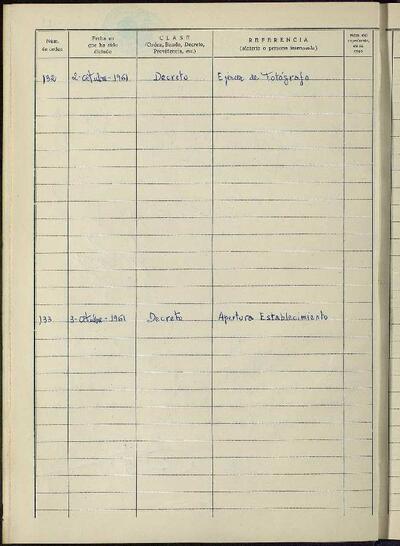 Núm. de orden
Fecha en que ha sido dictado
CLASE
(Orden, Bando, Decreto, Providencia, etc.)
REFERENCIA
(Materia o persona interesada)
Núm. del expediente, en su caso
132 2-Octubre-1961 Decreto Ejercer de Fotógrafo
133 3-Octubre-1961 Decreto Apertura Establecimiento